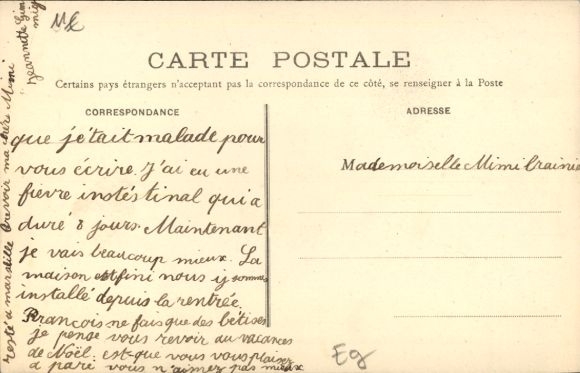 CARTE POSTALE
Certains pays étrangers n'acceptant pas la correspondance de ce côté, se renseigner à la Poste
CORRESPONDANCE
que je'tait malade pour
vous écrire. J'ai eu une
fievre instéstinal qui a
duré 8 jours. Maintenant
je vais beaucoup mieux. La
maison est fini nous y sommes
installé depuis la rentrée.
François ne fais que des bêtises
je pense vous revoir au vacances
de Noël. est-que vous vous plaisez
a paré vous n'aimez pas mieux
resté a marseille revoir ma chère Mimi
Jeannette
ADRESSE
Mademoiselle Mimi
Eg